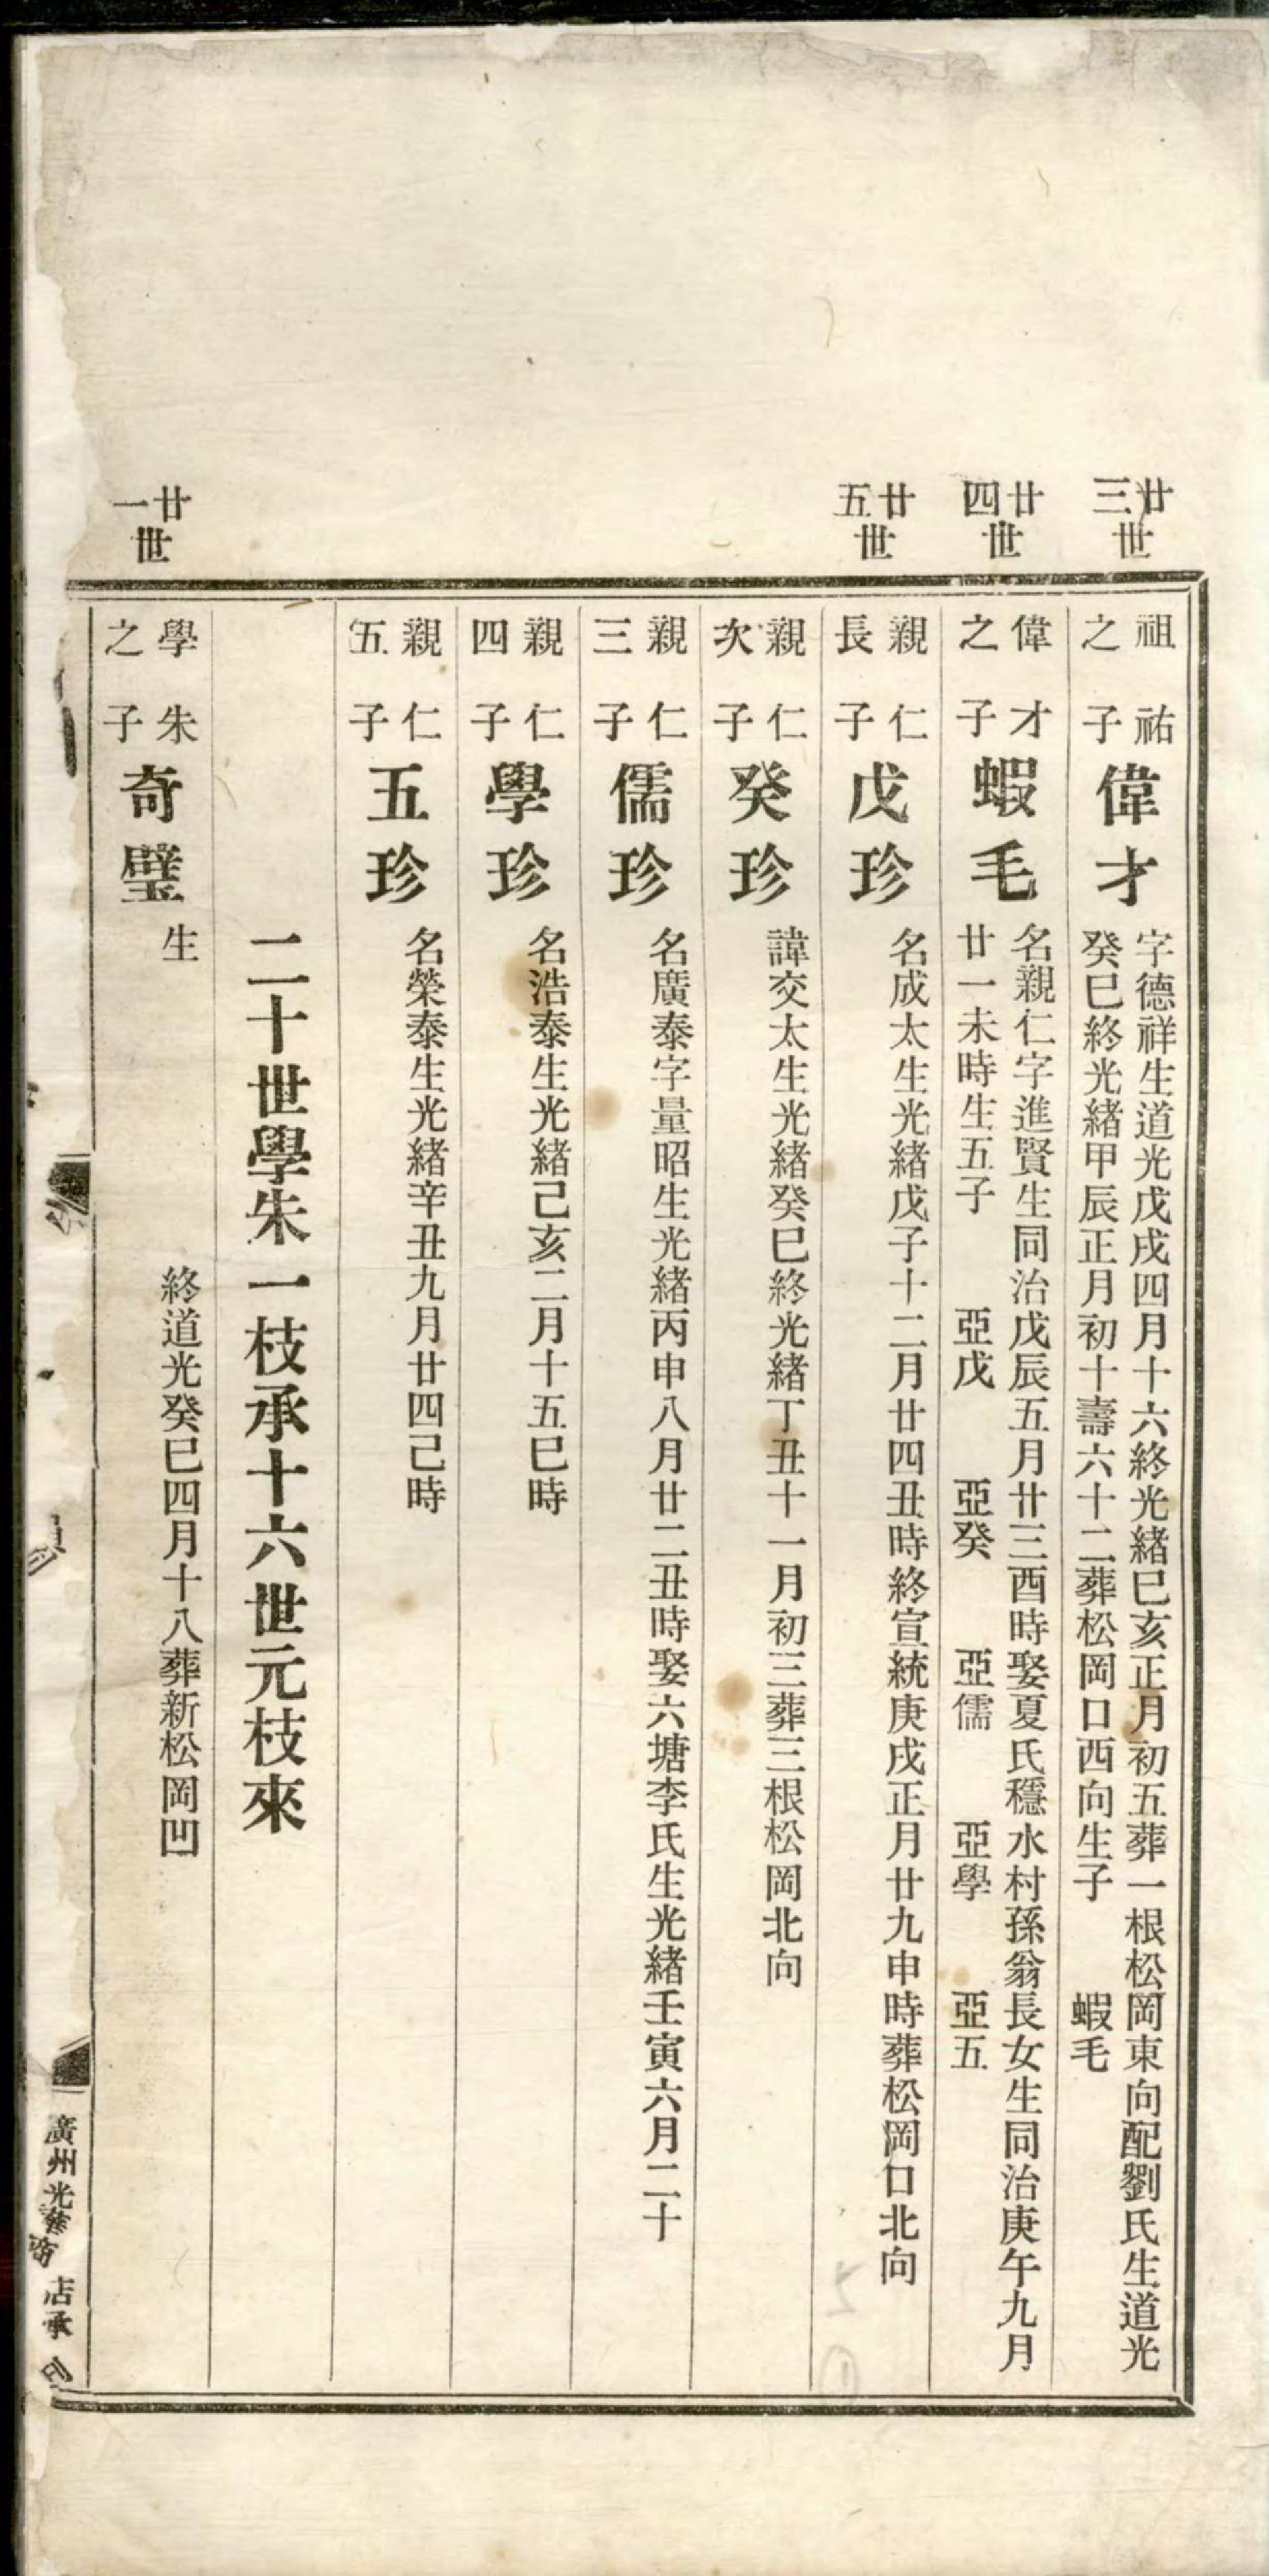 廿三世
祖祐之子
偉才
字德祥生道光戊戌四月十六終光緒巳亥正月初五葬一根松岡東向配劉氏生道光
癸巳終光緒甲辰正月初十壽六十二葬松岡口西向生子 蝦毛
廿四世
偉才之子
蝦毛
名親仁字進賢生同治戊辰五月廿三酉時娶夏氏穩水村孫翁長女生同治庚午九月
廿一未時生五子 亞戊 亞癸 亞儒 亞學 亞五
廿五世
親仁長子
戊珍
名成太生光緒戊子十二月廿四丑時終宣統庚戌正月廿九申時葬松岡口北向
親仁次子
癸珍
諱交太生光緒癸巳終光緒丁丑十一月初三葬三根松岡北向
親仁三子
儒珍
名廣泰字量昭生光緒丙申八月廿二丑時娶六塘李氏生光緒壬寅六月二十
親仁四子
學珍
名浩泰生光緒己亥二月十五巳時
親仁五子
五珍
名榮泰生光緒辛丑九月廿四己時
二十世學朱一枝承十六世元枝來
廿一世
學朱之子
奇璧
生 終道光癸巳四月十八葬新松岡凹
廣州光 店承